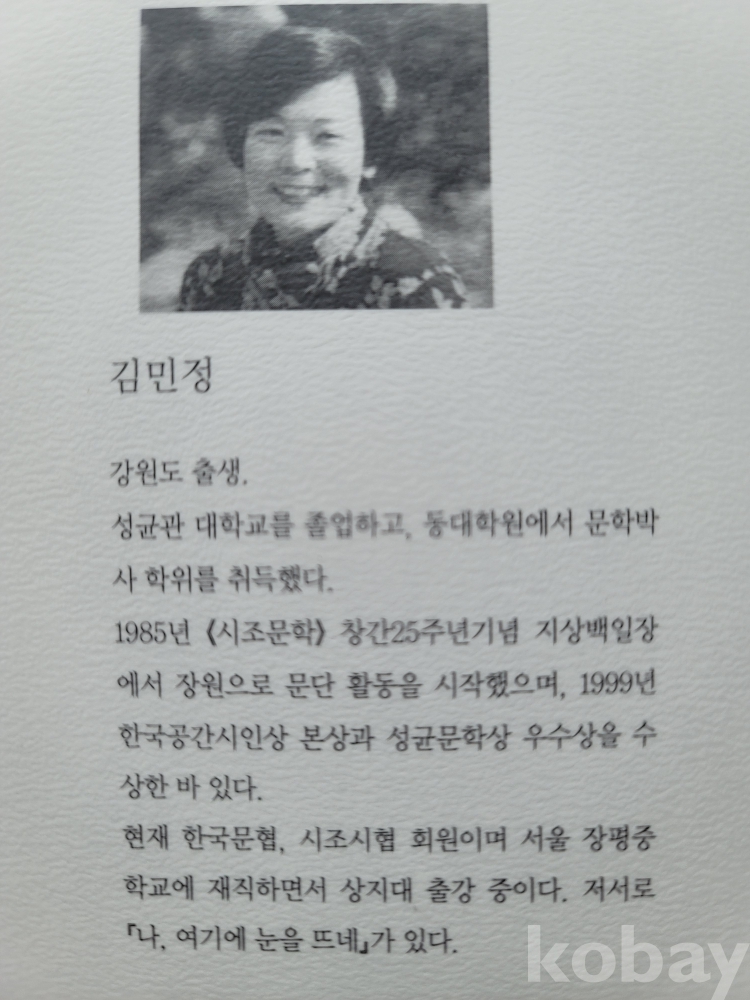 김민정
강원도 출생.
성균관 대학교를 졸업하고, 동대학원에서 문학박
사 학위를 취득했다.
1985년 《시조문학》 창간25주년기념 지상백일장
에서 장원으로 문단 활동을 시작했으며, 1999년
한국공간시인상 본상과 성균문학상 우수상을 수
상한 바 있다.
현재 한국문협, 시조시협 회원이며 서울 장평중
학교에 재직하면서 상지대 출강 중이다. 저서로
『나, 여기에 눈을 뜨네』가 있다.
kobay